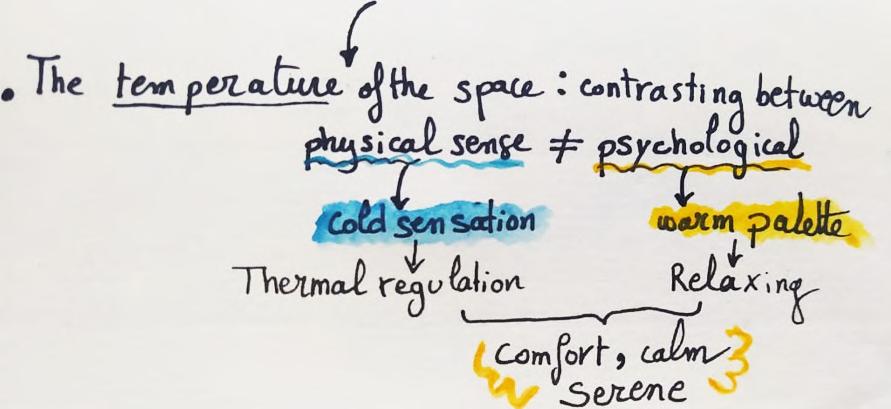 • The temperature of the space : contrasting between
physical sense ≠ psychological
cold sensation warm palette
Thermal regulation Relaxing
Comfort, calm
Serene